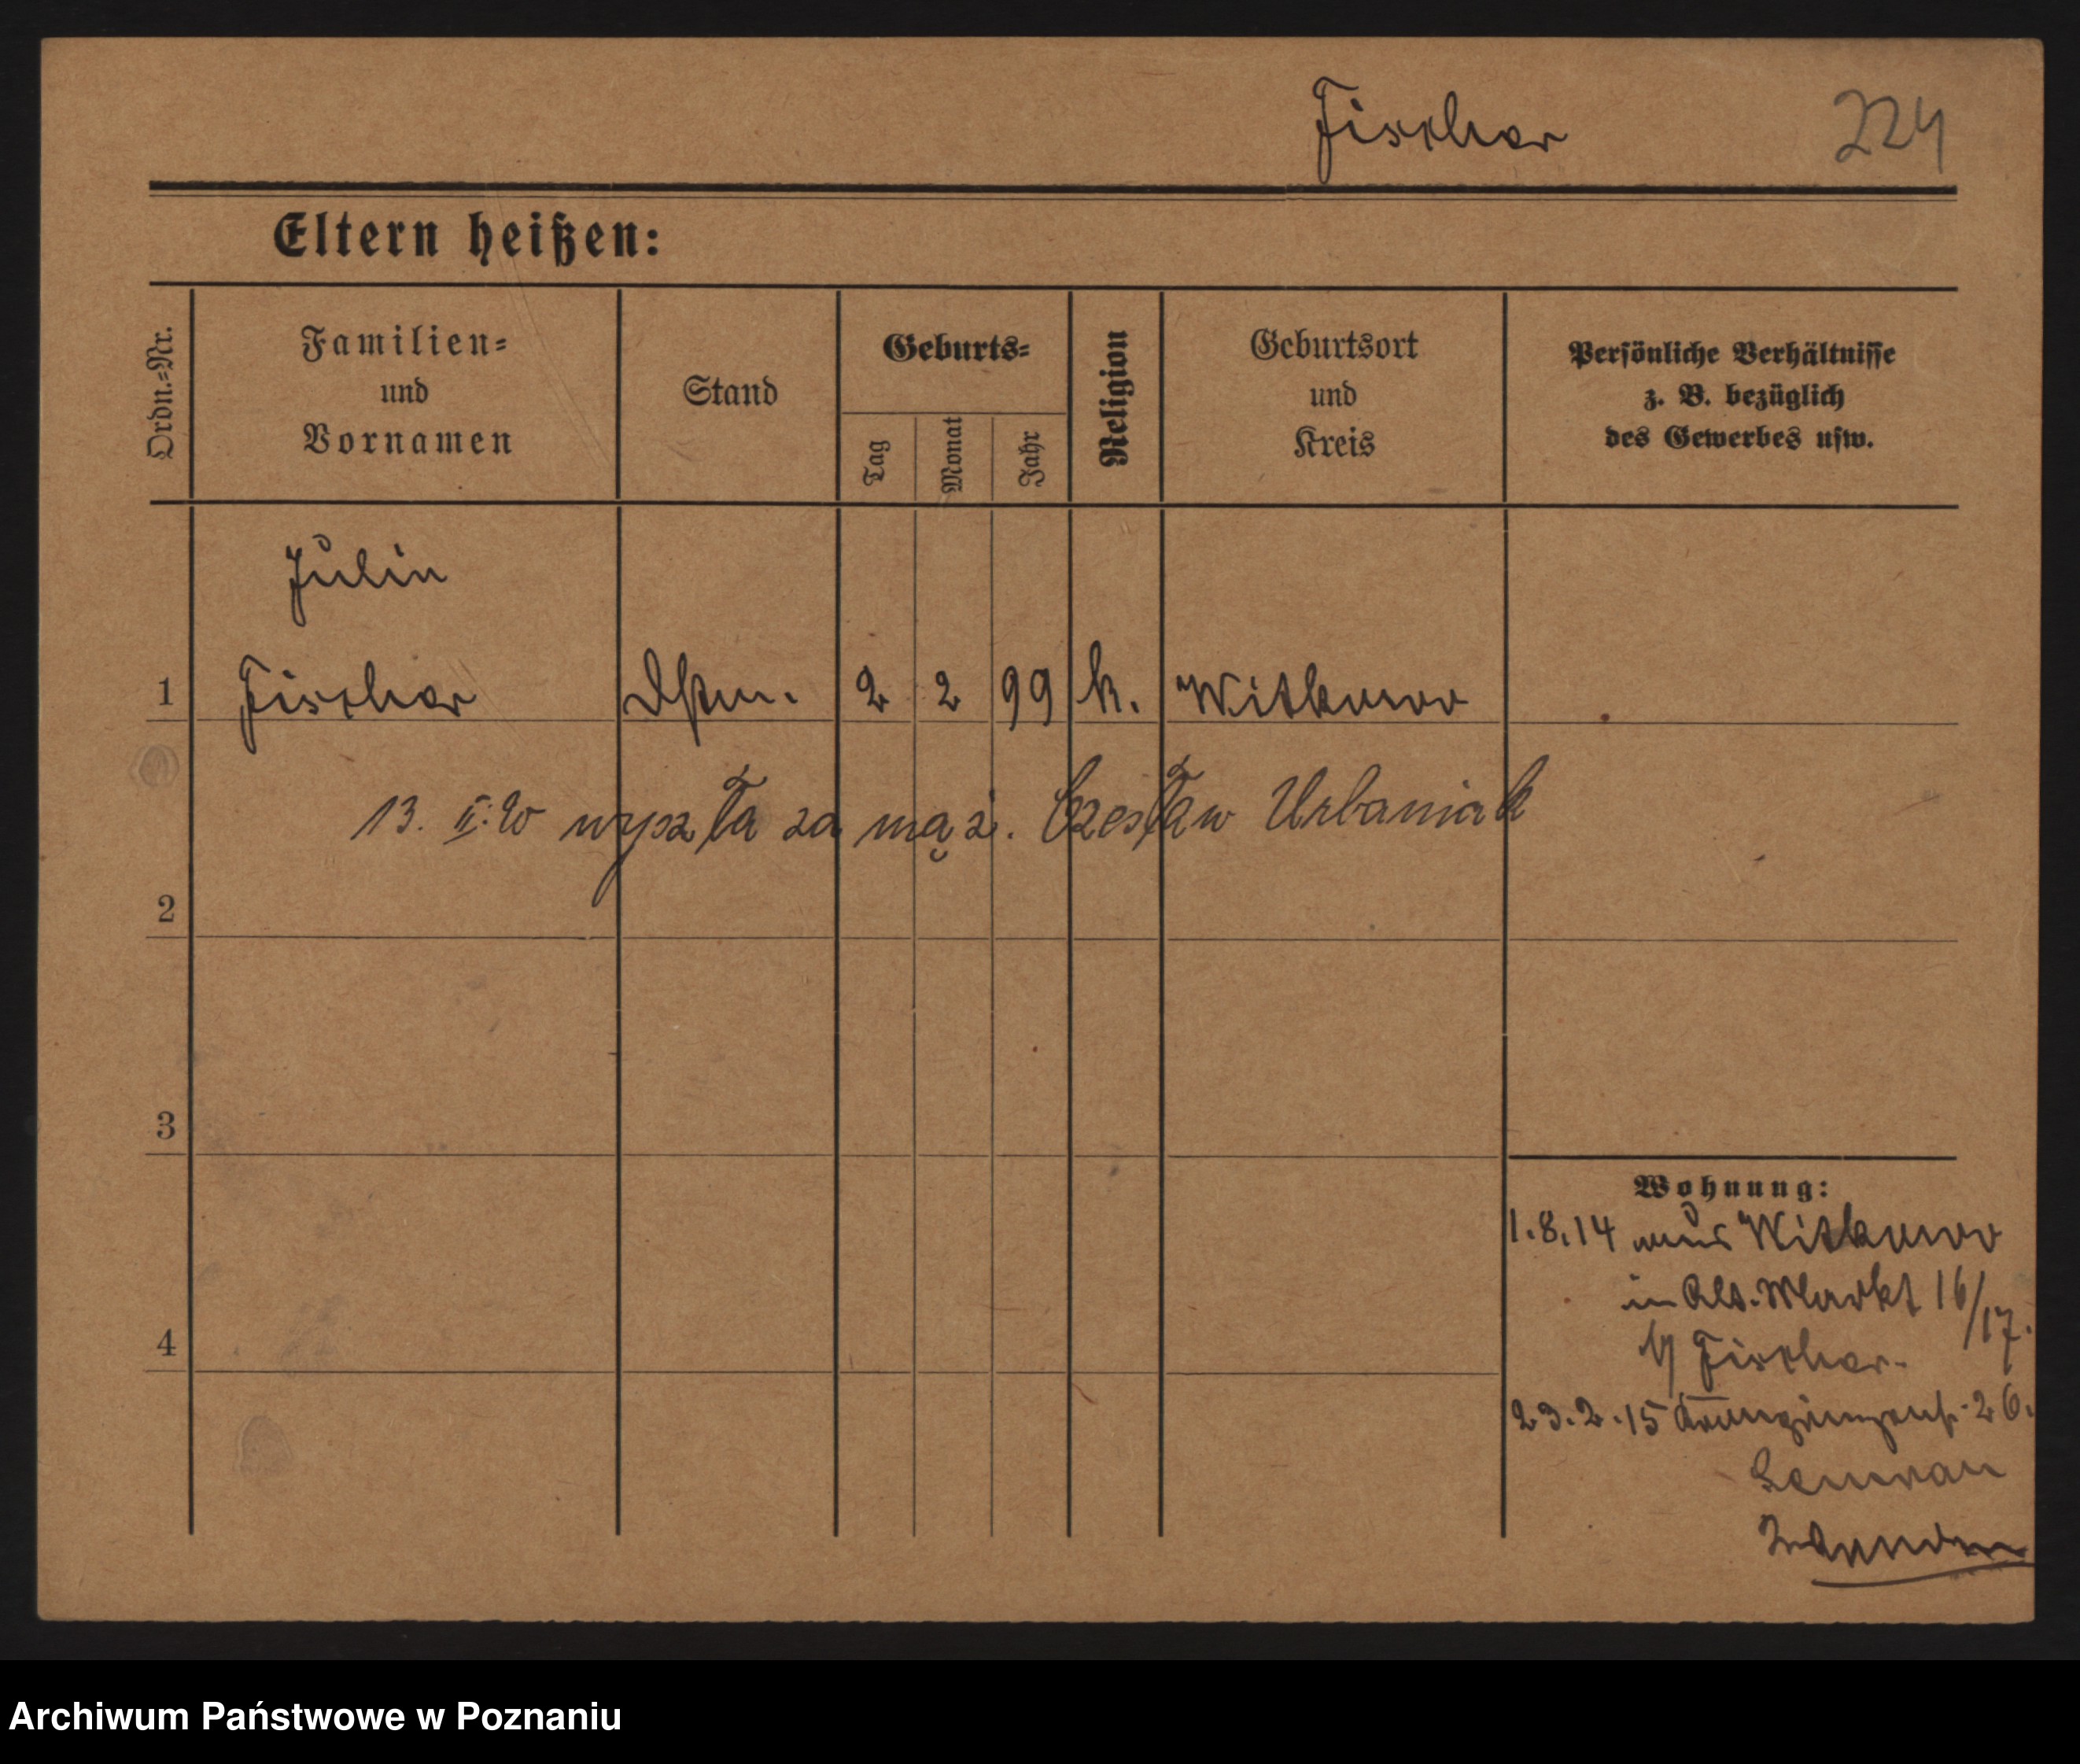 Fischer 224
Eltern heißen:
Ordn.=Nr.
Familien=
und
Vornamen
Stand
Geburts=
Tag
Monat
Jahr
Religion
Geburtsort
und
Kreis
Persönliche Verhältnisse
z. B. bezüglich
des Gewerbes usw.
Julia
1 Fischer 2 2 99 k. Witkowo
13. II. 20 wyszła za mąż. Czesław Urbaniak
2
3
4
Wohnung:
1.8.14 aus Witkowo
in Alt. Markt 16/17.
b/ Fischer.
23.2.15 26.